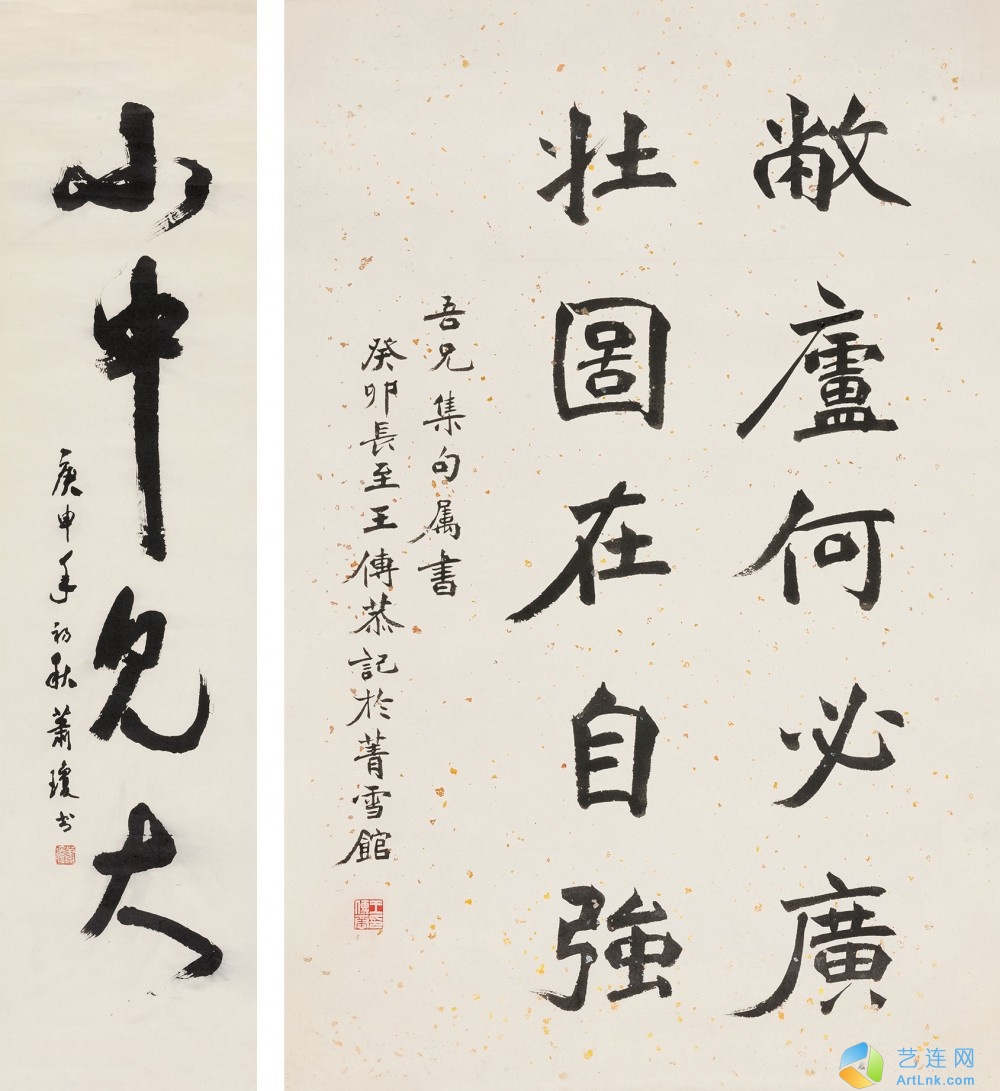 小中見大
庚申年初秋蕭瓊书
敝廬何必廣
壯圖在自強
吾兄集句属書
癸卯長至王傳恭記於菁雪館
艺连网
ArtLnk.com